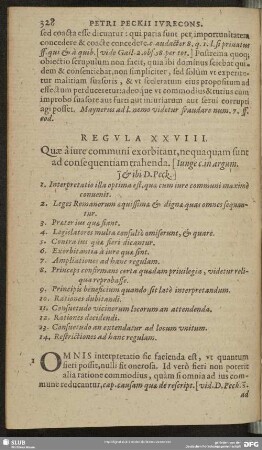 328 PETRI PECKII IVRECONS.
sed coacta esse dicuntur: qui paria sunt per importunitatem
concedere & coacte concedere
obiectio scrupulum non facit, quia ibi dominus sciebat qui-
dem & consentiebat, non simpliciter, sed solùm vt experi-
retur maritum suasurus, & vt lectorem eius propositum ad
effectum perduceret
improbo suasore aut serui corrupti
agi posset. Maynerius ad l. nemo videtur fraudare num. 7. ff.
eod.
REGVLA XXVIII.
Quæ à iure communi exorbitant, nequaquam sunt
ad consequentiam trahenda. [Iunge c. in argum.
& ibi D. Peck.]
1. Interpretatio illa optima est, qua cum iure communi maximè
conuenit.
2. Leges Romanorum æquissimæ & digna quas omnes sequan-
tur.
3. Prater ius quæ fiant.
4. Legislatores multa consultò omiserunt, & quare.
5. Contra ius quæ fieri dicantur.
6. Exorbitantia à iure qua sint.
7. Ampliationes ad hanc regulam.
8. Princeps confirmans certa quædam priuilegia, videtur reli-
qua reprobasse.
9. Principis beneficium quando sit latè interpretandum.
10. Rationes dubitandi.
11. Consuetudo vicinorum locorum an attendenda.
12. Rationes decidendi.
13. Consuetudo an extendatur ad locum vnitum.
14. Restrictiones ad hanc regulam.
1 OMNIS interpretatio sic facienda est, vt quantum
fieri potest, nulli fit onerosa. Id verò fieri non poterit
alia ratione commodius, quàm si omnia ad ius com-
mune reducantur, cap. causam quæ de rescript. [vid. D. Peck.
ad
SLUB
DFG